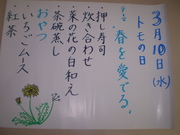 3月10日(水)
トモの日
テーマ 春を愛でる。
・押し寿司
・炊き合わせ
・菜の花の日和え
・茶碗蒸し
おやつ
・いちごムース
・紅茶